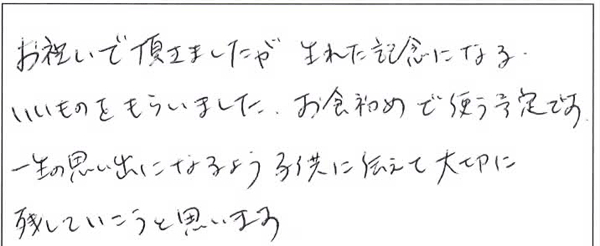 お祝いで頂きましたが 生れた記念になる.
いいものをもらいました. お食初めで使う予定です.
一生の思い出になるよう 子供に伝えて大切に
残していこうと思います